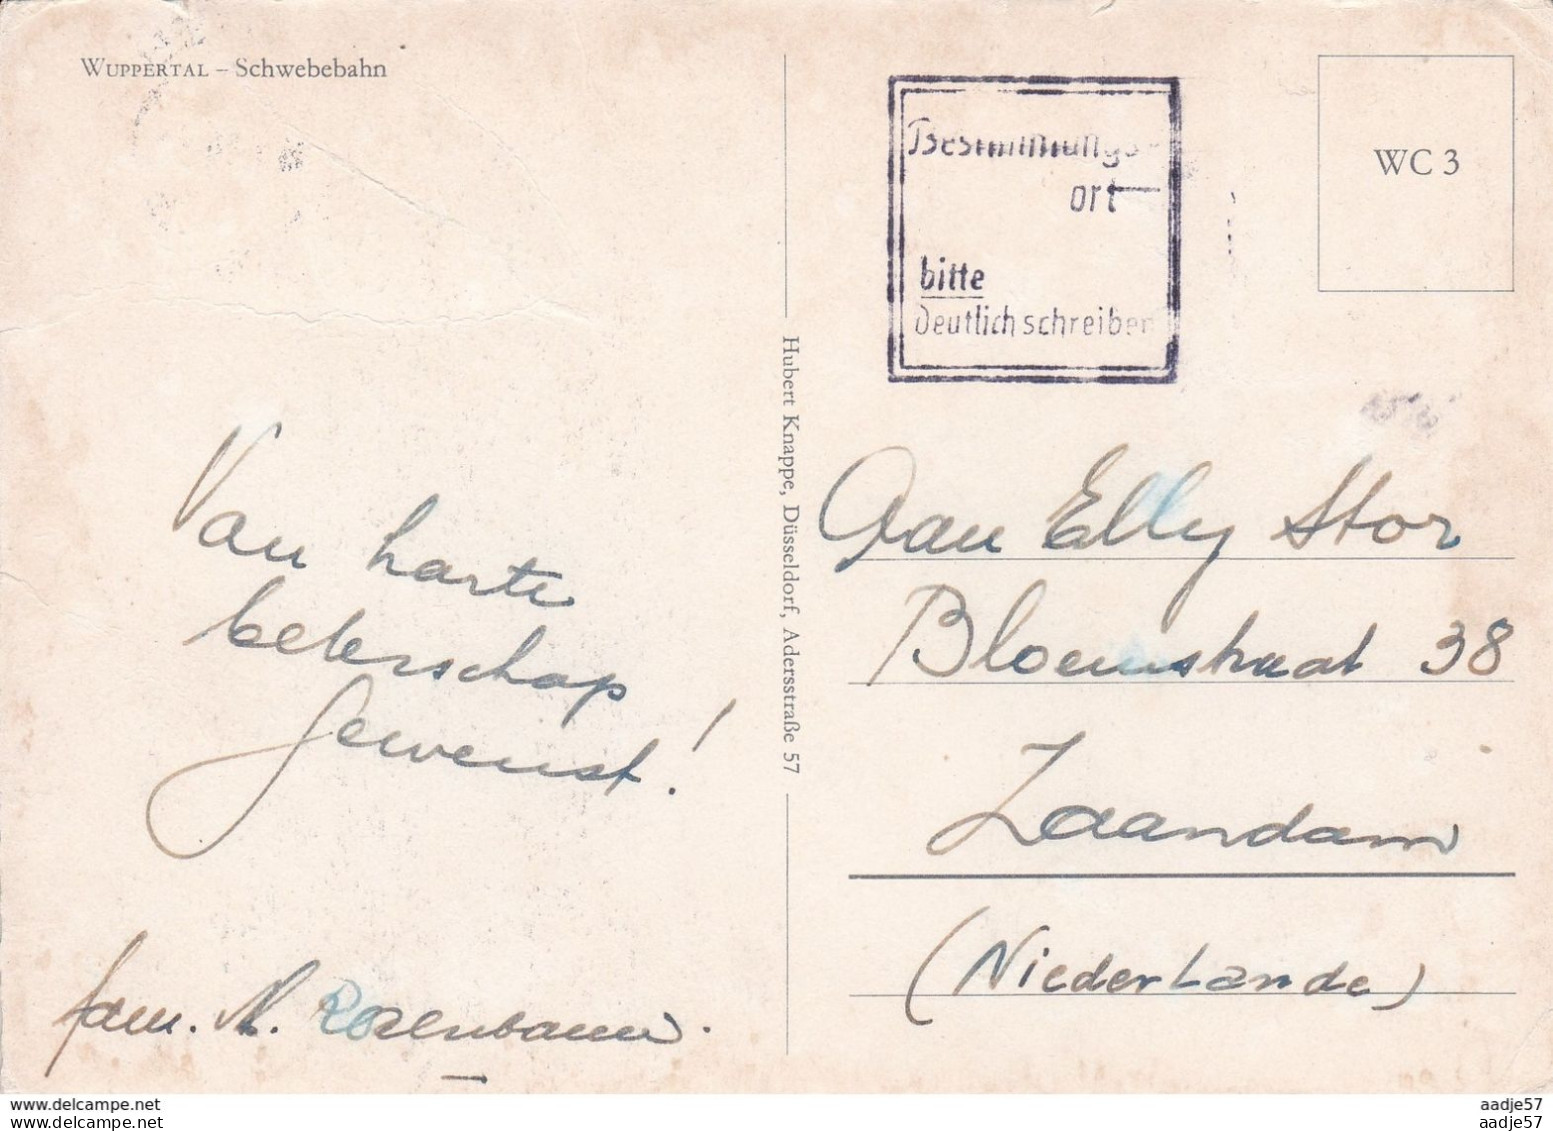 WUPPERTAL – Schwebebahn
Bestimmungs-
ort
bitte
deutlich schreiben
WC 3
Hubert Knappe, Düsseldorf, Adersstraße 57
Van harte
beterschap
gewenst!
fam. N. Rozenbaum.
Aan Elly Stor
Bloemstraat 38
Zaandam
(Niederlande)
www.delcampe.net
www.delcampe.net
aadje57
aadje57